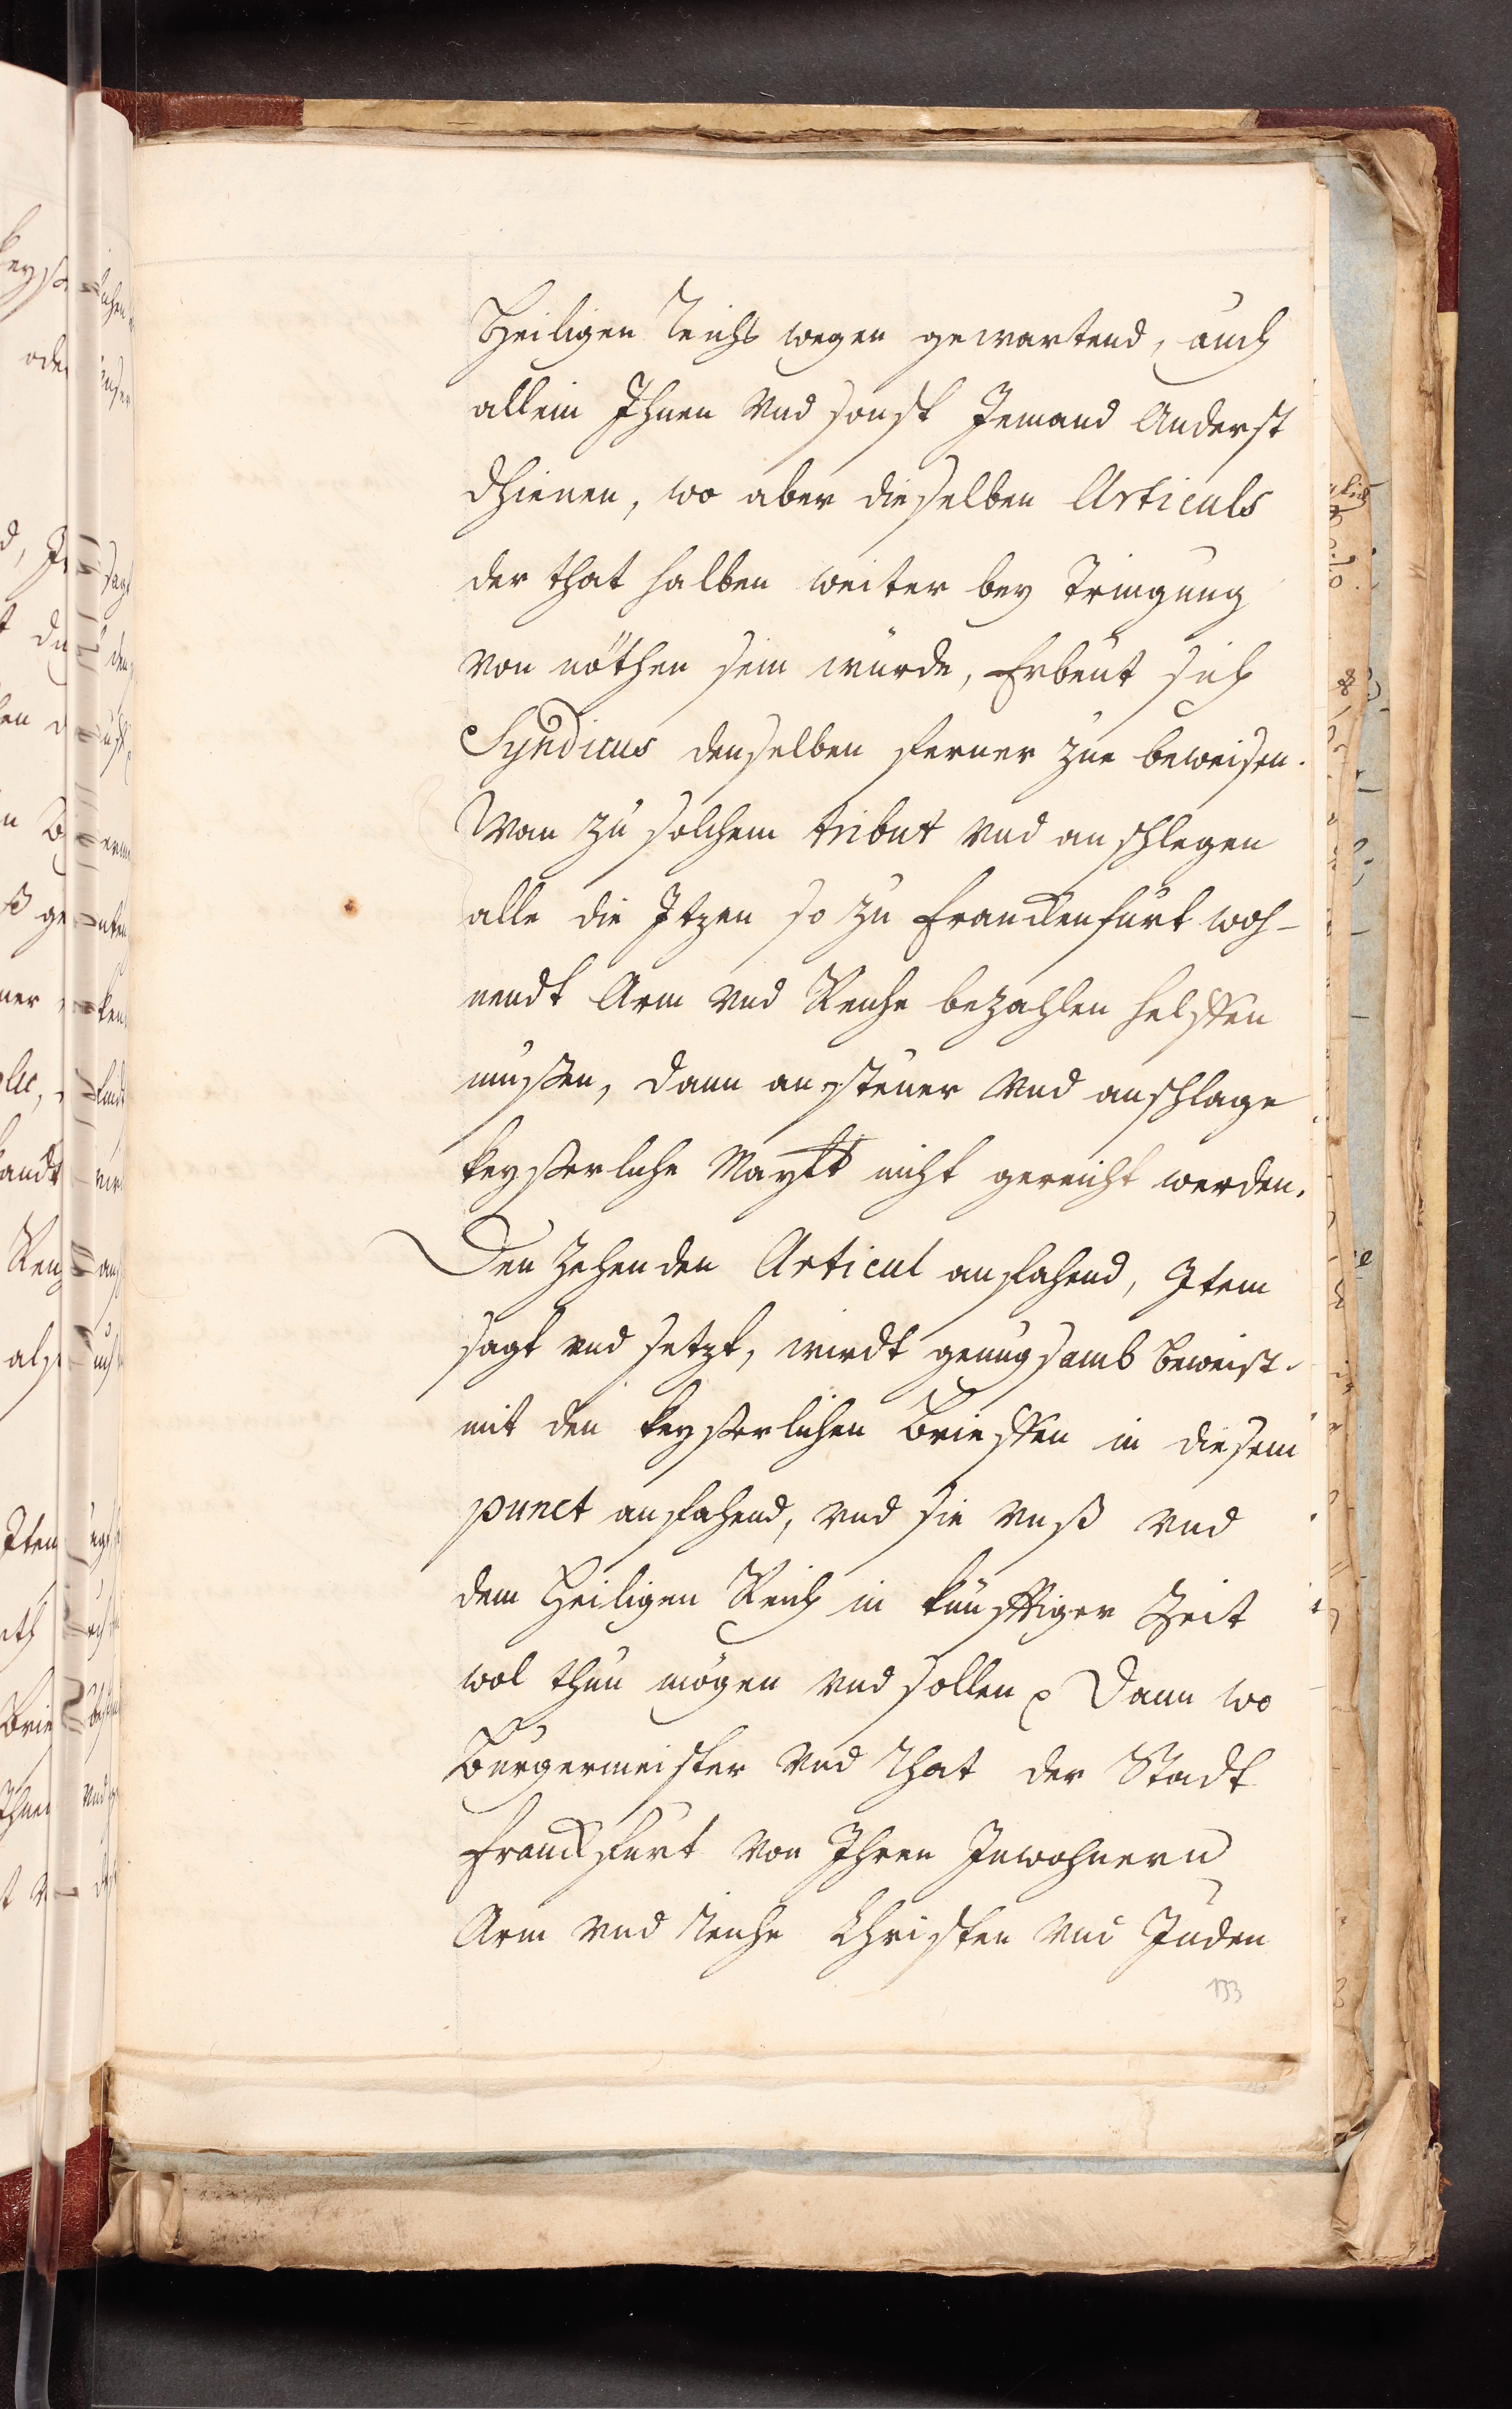 Heiligen Reichs wegen gewartend, auch
allein Ihnen vnd sonst Jemand Anderst
dhienen, wo aber dieselben Articuls
der that halben weiter bey Dringung
von nöthen sein würde, Erbeut sich
Syndicus denselben ferner zue beweisen.
Wan zu solchem tribut vnd anschlegen
alle die Itzen so zu Franckenfurt woh-
nendt Arm vnd Reiche bezahlen helffen
mussen, dann ansteuer vnd anschlage
keyserliche Maytt nicht gereicht werden.
Den zehenden Articul anfahend, Item
sagt vnd setzt, wirdt genugsamb beweist.
mit den keyserlichen Brieffen in diesem
punct anfahend, vnd sie vnß vnd
dem Heiligen Reich in künfftiger Zeit
wol thun mögen vnd sollen Dann wo
Burgermeister vnd Rhat der Stadt
Franckfurt von Ihren Inwohnern
Arm vnd Reiche Christen vnd Juden
133